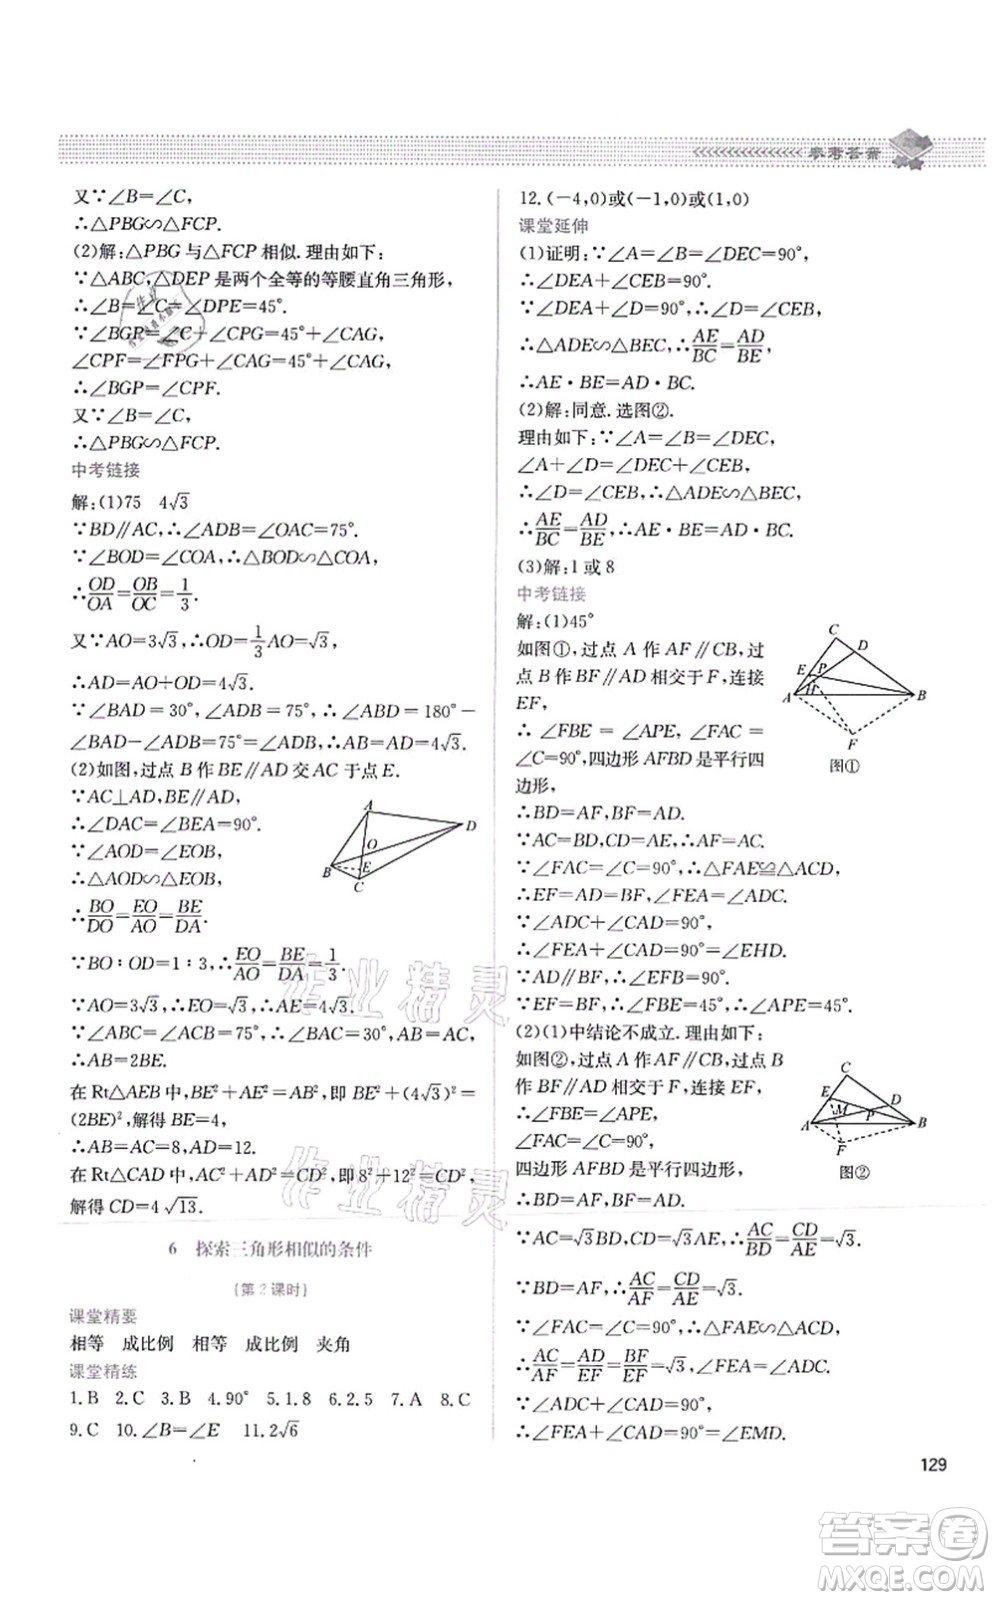 参考答案
又∵∠B=∠C,
∴△PBG∽△FCP.
(2)解:△PBG与△FCP相似.理由如下:
∵△ABC,△DEP是两个全等的等腰直角三角形,
∴∠B=∠C=∠DPE=45°.
∵∠BGP=∠C+∠CPG=45°+∠CAG,
∠CPF=∠FPG+∠CAG=45°+∠CAG,
∴∠BGP=∠CPF.
又∵∠B=∠C,
∴△PBG∽△FCP.
中考链接
解:(1)75 4√3
∵BD∥AC,∴∠ADB=∠OAC=75°.
∵∠BOD=∠COA,∴△BOD∽△COA,
∴OD/OA=OB/OC=1/3.
又∵AO=3√3,∴OD=1/3AO=√3,
∴AD=AO+OD=4√3.
∵∠BAD=30°,∠ADB=75°,∴∠ABD=180°-
∠BAD-∠ADB=75°=∠ADB,∴AB=AD=4√3.
(2)如图,过点B作BE∥AD交AC于点E.
∵AC⊥AD,BE∥AD,
∴∠DAC=∠BEA=90°.
∵∠AOD=∠EOB,
∴△AOD∽△EOB,
∴BO/DO=EO/AO=BE/DA.
∵BO∶OD=1∶3,∴EO/AO=BE/DA=1/3.
∵AO=3√3,∴EO=√3,∴AE=4√3.
∵∠ABC=∠ACB=75°,∴∠BAC=30°,AB=AC,
∴AB=2BE.
在Rt△AEB中,BE²+AE²=AB²,即(4√3)²+BE²=
(2BE)²,解得BE=4,
∴AB=AC=8,AD=12.
在Rt△CAD中,AC²+AD²=CD²,即8²+12²=CD²,
解得CD=4√13.
A
O
D
B
E
C
6 探索三角形相似的条件
(第2课时)
课堂精要
相等 成比例 相等 成比例 夹角
课堂精练
1.B 2.C 3.B 4.90° 5.1.8 6.2.5 7.A 8.C
9.C 10.∠B=∠E 11.2√6
12.(-4,0)或(-1,0)或(1,0)
课堂延伸
(1)证明:∵∠A=∠B=∠DEC=90°,
∴∠DEA+∠CEB=90°.
∵∠DEA+∠D=90°,∴∠D=∠CEB,
∴△ADE∽△BEC,∴AE/BC=AD/BE,
∴AE·BE=AD·BC.
(2)解:同意.选图②.
理由如下:∵∠A=∠B=∠DEC,
∠A+∠D=∠DEC+∠CEB,
∴∠D=∠CEB,∴△ADE∽△BEC,
∴AE/BC=AD/BE,∴AE·BE=AD·BC.
(3)解:1或8
中考链接
解:(1)45°
如图①,过点A作AF∥CB,过
点B作BF∥AD相交于F,连接
EF,
∴∠FBE=∠APE,∠FAC=
∠C=90°,四边形AFBD是平行四
边形,
∴BD=AF,BF=AD.
∵AC=BD,CD=AE,∴AF=AC.
∵∠FAC=∠C=90°,∴△FAE≌△ACD,
∴EF=AD=BF,∠FEA=∠ADC.
∵∠ADC+∠CAD=90°,
∴∠FEA+∠CAD=90°=∠EHD.
∵AD∥BF,∴∠EFB=90°.
∵EF=BF,∴∠FBE=45°,∴∠APE=45°.
(2)(1)中结论不成立.理由如下:
如图②,过点A作AF∥CB,过点B
作BF∥AD相交于F,连接EF,
∴∠FBE=∠APE,
∠FAC=∠C=90°,
四边形AFBD是平行四边形,
∴BD=AF,BF=AD.
∵AC=√3BD,CD=√3AE,∴AC/BD=CD/AE=√3.
∵BD=AF,∴AC/AF=CD/AE=√3.
∵∠FAC=∠C=90°,∴△FAE∽△ACD,
∴AC/AF=AD/EF=BF/EF=√3,∠FEA=∠ADC.
∵∠ADC+∠CAD=90°,
∴∠FEA+∠CAD=90°=∠EMD.
C
D
E
P
H
A
B
F
图①
C
E
D
M
P
A
B
F
图②
129
作业精灵
作业精灵
答案卷
MXQE.COM